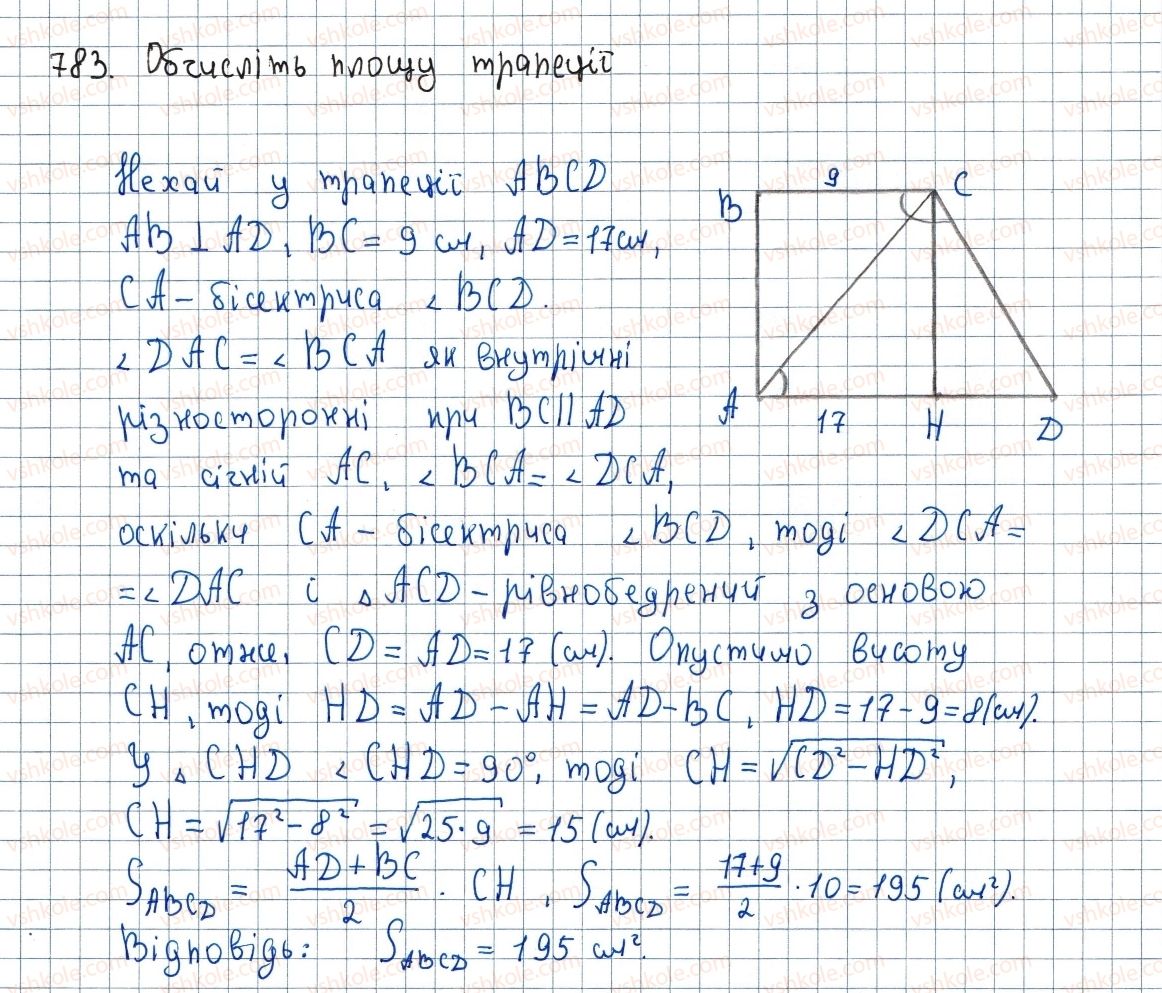 783. Обчисліть площу трапеції
Нехай у трапеції ABCD
AB ⊥ AD, BC = 9 см, AD = 17см,
CA – бісектриса ∠ BCD.
∠ DAC = ∠ BCA як внутрішні
різносторонні при BC || AD
та січній AC, ∠ BCA = ∠ DCA,
оскільки CA – бісектриса ∠ BCD, тоді ∠ DCA =
= ∠ DAC і △ ACD – рівнобедрений з основою
AC, отже, CD = AD = 17 (см). Опустимо висоту
CH, тоді HD = AD – AH = AD – BC, HD = 17 – 9 = 8(см).
У △ CHD ∠ CHD = 90°, тоді CH = √(CD² – HD²),
CH = √(17² – 8²) = √(25 · 9) = 15 (см).
S_ABCD = (AD + BC)/2 · CH, S_ABCD = (17+9)/2 · 10 = 195 (см²).
Відповідь: S_ABCD = 195 см².
9
B
C
A
17
H
D